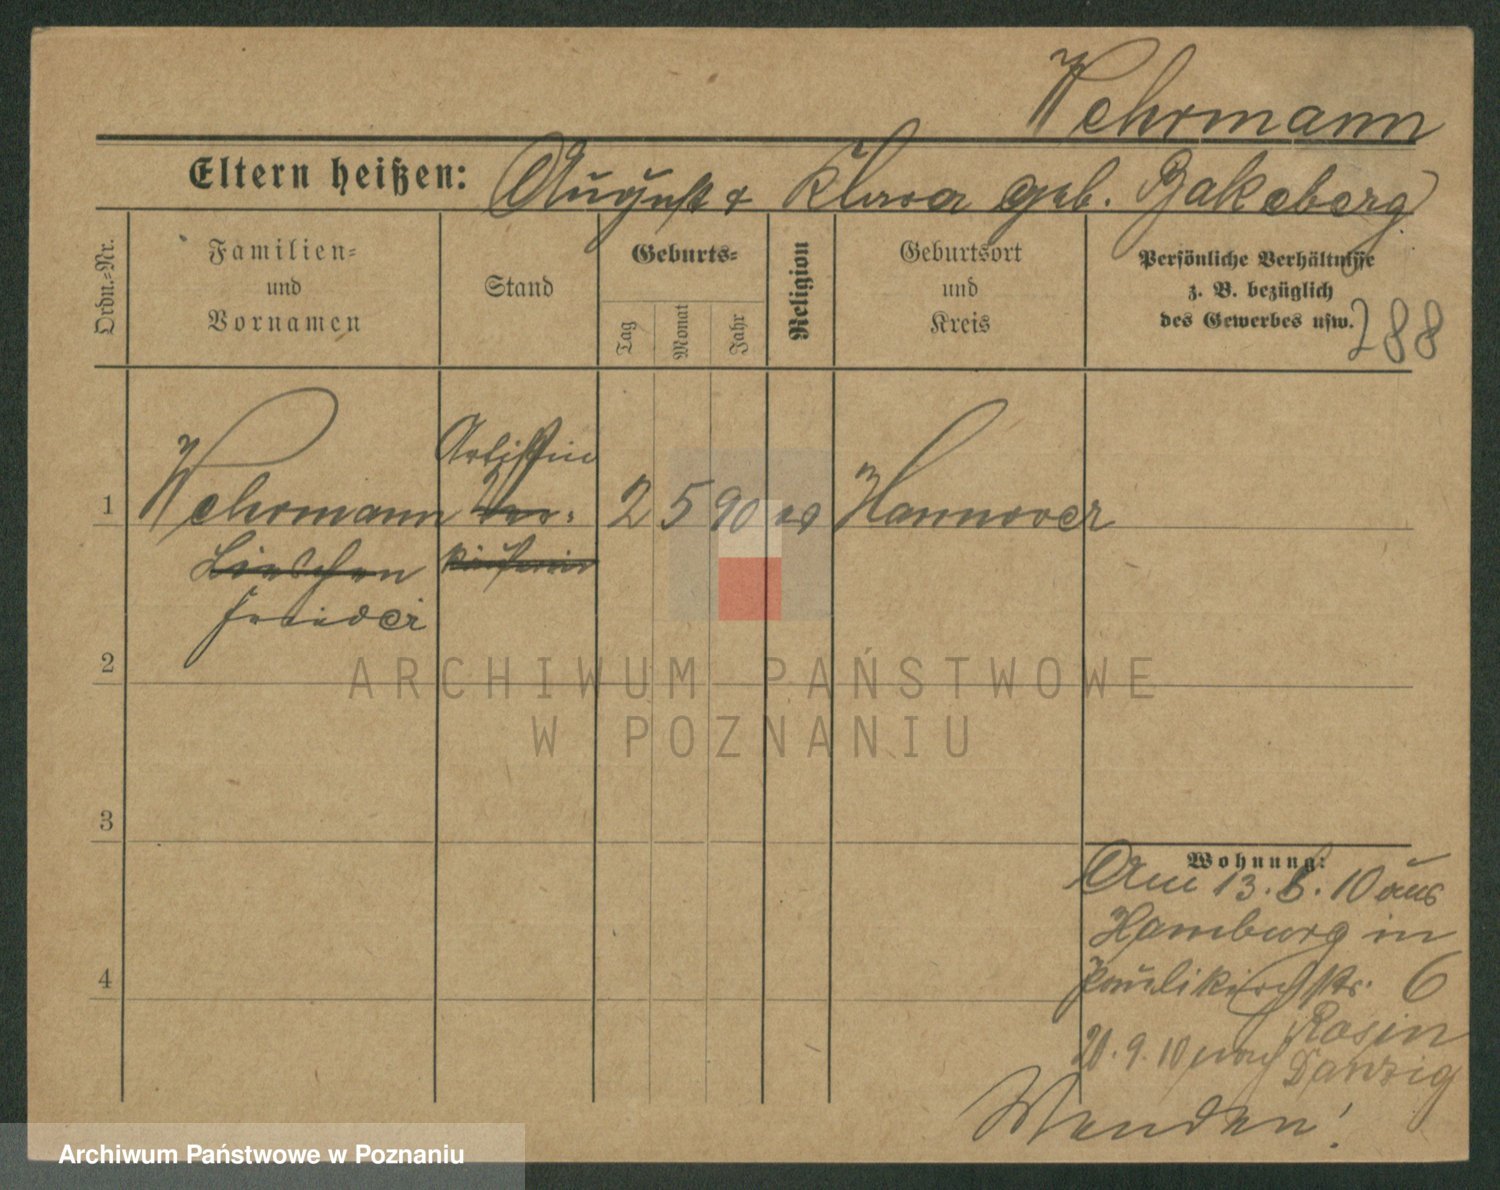 Wehrmann
Eltern heißen: August & Klara geb. Bakeberg
Ordn.-Nr.
Familien-
und
Vornamen
Stand
Geburts-
Tag
Monat
Jahr
Religion
Geburtsort
und
Kreis
Persönliche Verhältnisse
z. B. bezüglich
des Gewerbes usw.
288
Artistin
1 Wehrmann Ver- 2 5 90 ev Hannover
Lieschen käuferin
Frieder
2
ARCHIWUM PAŃSTWOWE
W POZNANIU
3
Wohnung:
Am 13. 6. 10 aus
Hamburg in
Paulikirchstr. 6
Rosin
4
20. 9. 10 nach Danzig
Wenden!
Archiwum Państwowe w Poznaniu